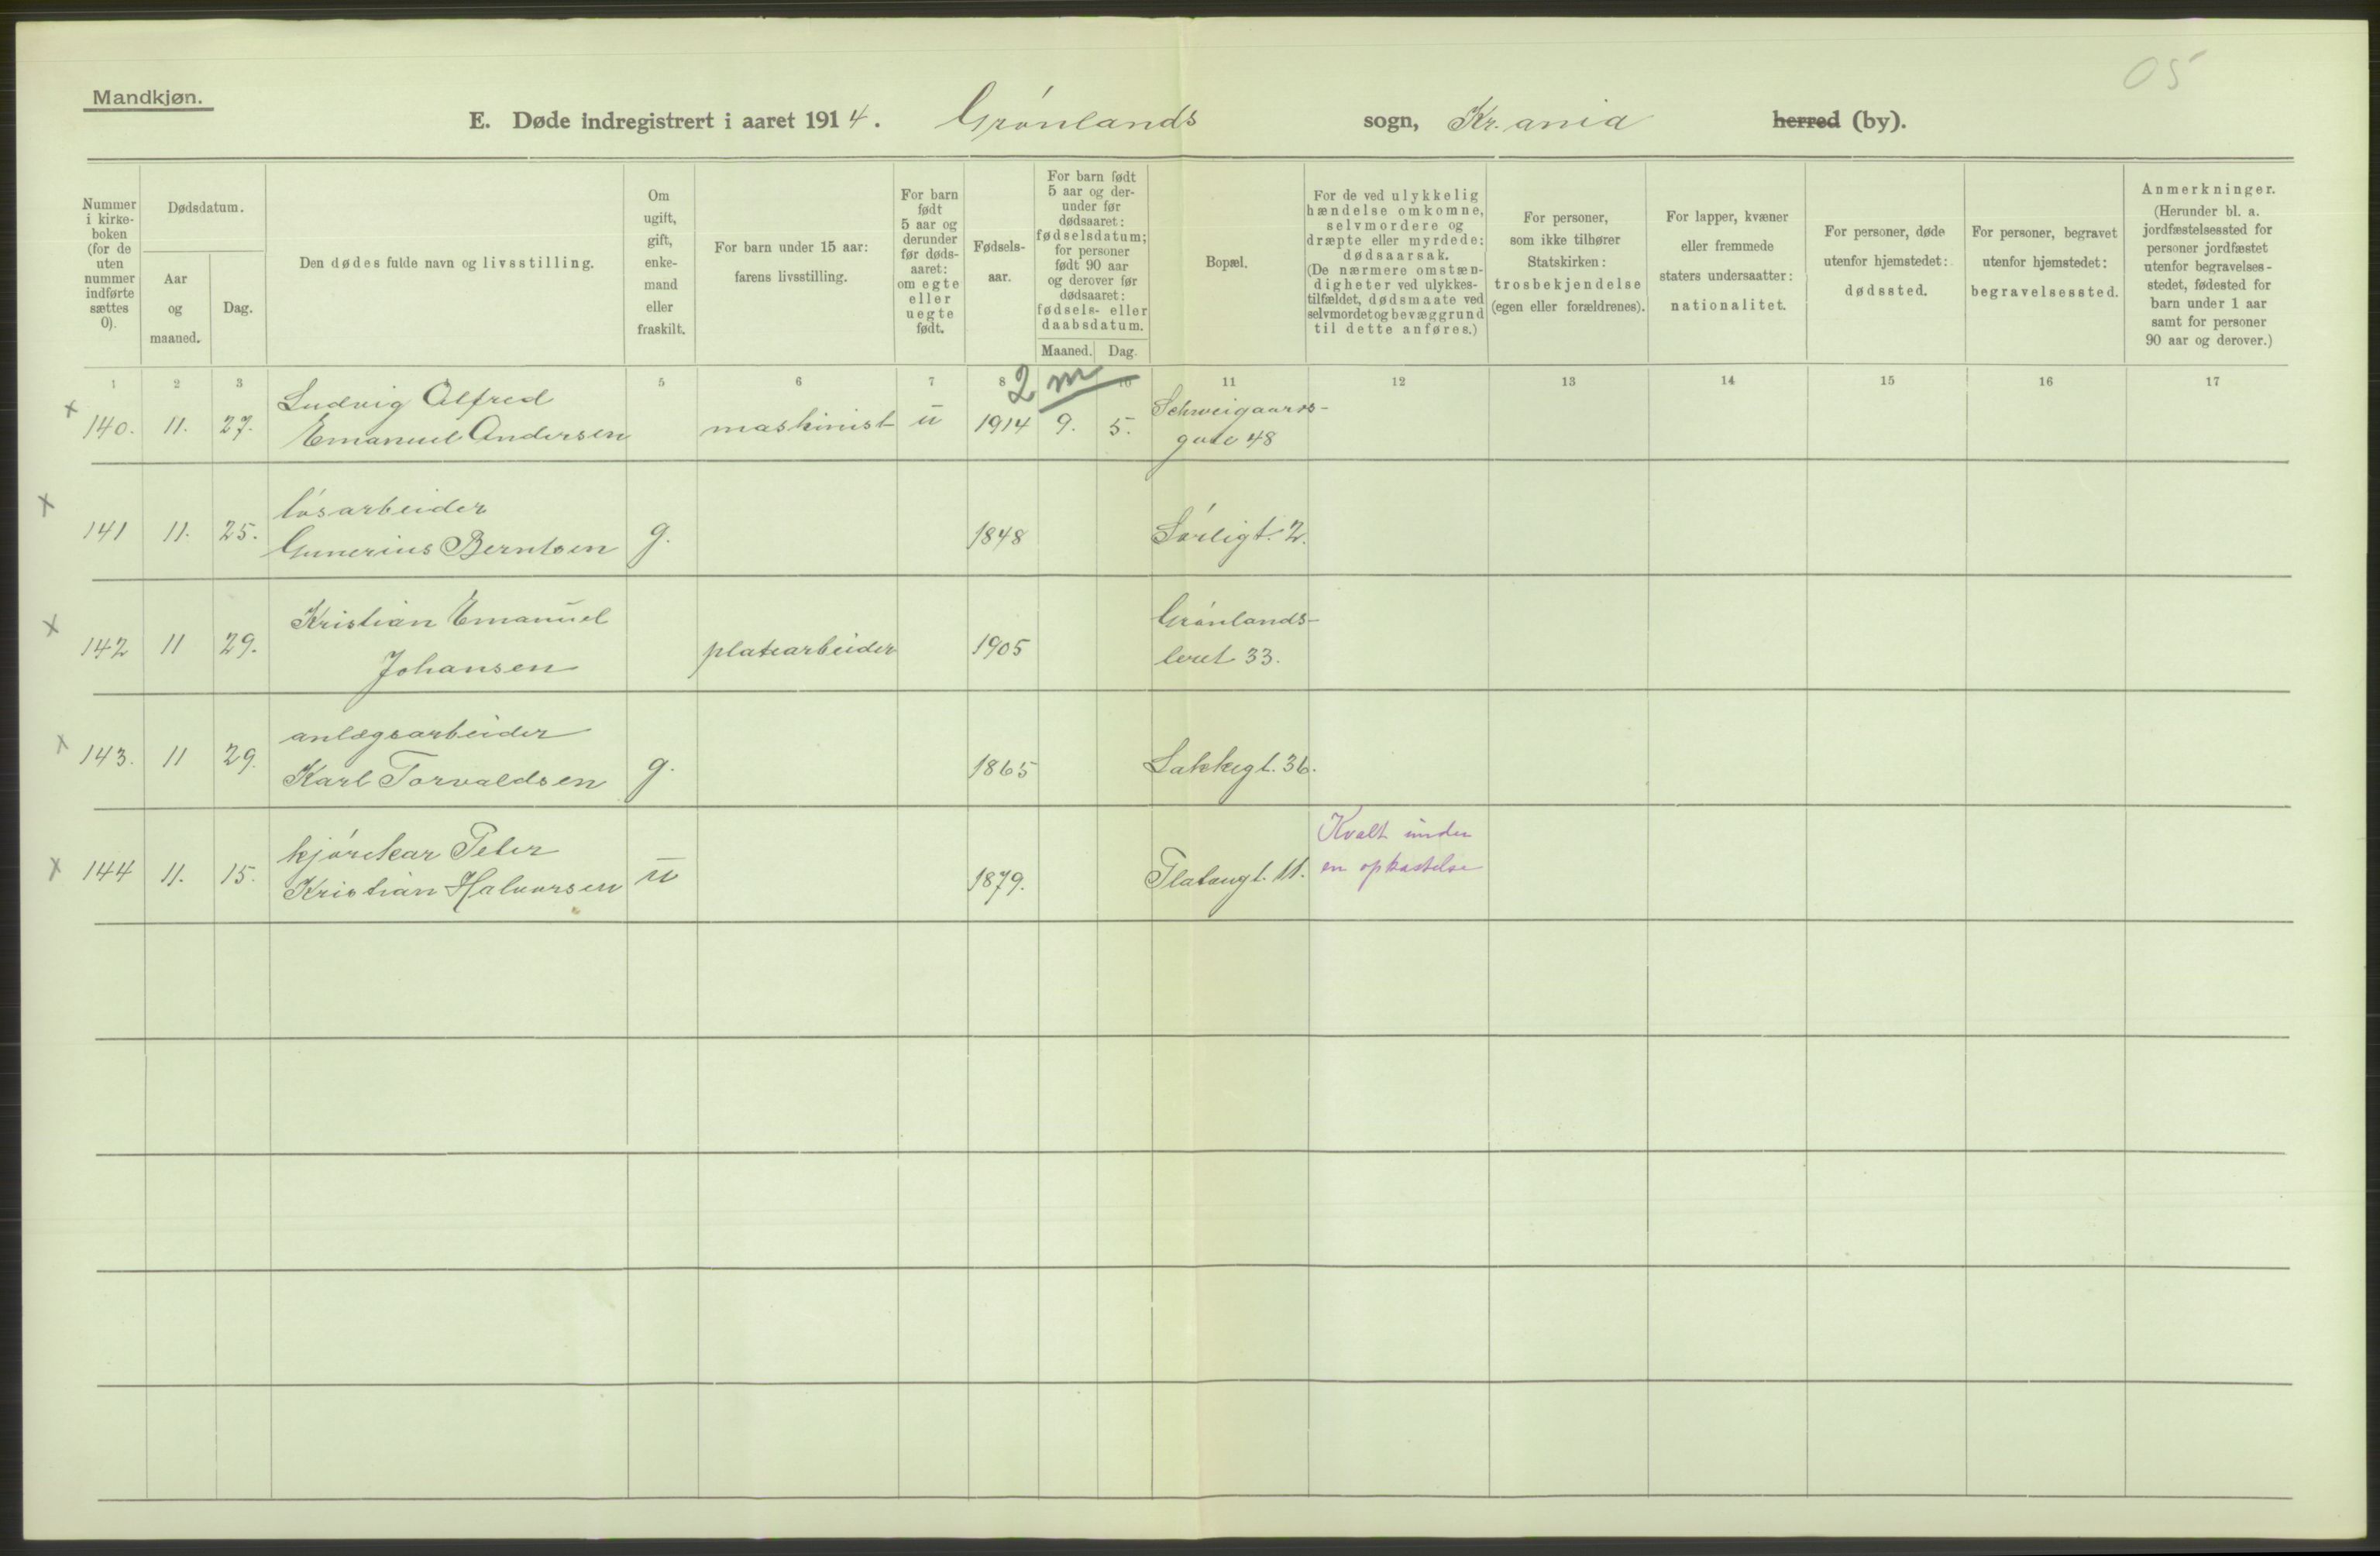 05
Mandkjøn.
E. Døde indregistrert i aaret 1914. Grønlands sogn, Kr.ania herred (by).
Nummer
i kirke-
boken
(for de
uten
nummer
indførte
sættes
0).
Dødsdatum.
Aar
og
maaned.
Dag.
Den dødes fulde navn og livsstilling.
Om
ugift,
gift,
enke-
mand
eller
fraskilt.
For barn under 15 aar:
farens livsstilling.
For barn
født
5 aar og
derunder
før døds-
aaret:
om egte
eller
uegte
født.
Fødsels-
aar.
For barn født
5 aar og der-
under før
dødsaaret:
fødselsdatum;
for personer
født 90 aar
og derover før
dødsaaret:
fødsels- eller
daabsdatum.
Maaned. Dag.
Bopæl.
For de ved ulykkelig
hændelse omkomne,
selvmordere og
dræpte eller myrdede:
dødsaarsak.
(De nærmere omstæn-
digheter ved ulykkes-
tilfældet, dødsmaate ved
selvmordet og bevæggrund
til dette anføres.)
For personer,
som ikke tilhører
Statskirken:
trosbekjendelse
(egen eller forældrenes).
For lapper, kvæner
eller fremmede
staters undersaatter:
nationalitet.
For personer, døde
utenfor hjemstedet:
dødssted.
For personer, begravet
utenfor hjemstedet:
begravelsessted.
Anmerkninger.
(Herunder bl. a.
jordfæstelsessted for
personer jordfæstet
utenfor begravelses-
stedet, fødested for
barn under 1 aar
samt for personer
90 aar og derover.)
1 2 3 5 6 7 8 10 11 12 13 14 15 16 17
2 m
x 140. 11. 27. Ludvig Alfred
Emanuel Andersen maskinist u 1914 9. 5. Schweigaards-
gate 48
x 141 11. 25. løsarbeider
Gunerius Berntsen g. 1848 Sørligt. 2.
x 142 11 29. Kristian Emanuel
Johansen platearbeider 1905 Grønlands-
leret 33.
x 143. 11 29. anlægsarbeider
Karl Torvaldsen g. 1865 Lakkegt. 36.
x 144 11. 15. kjørekar Peter
Kristian Halvorsen u 1879. Platougt. 11. Kvalt under
en opkastelse